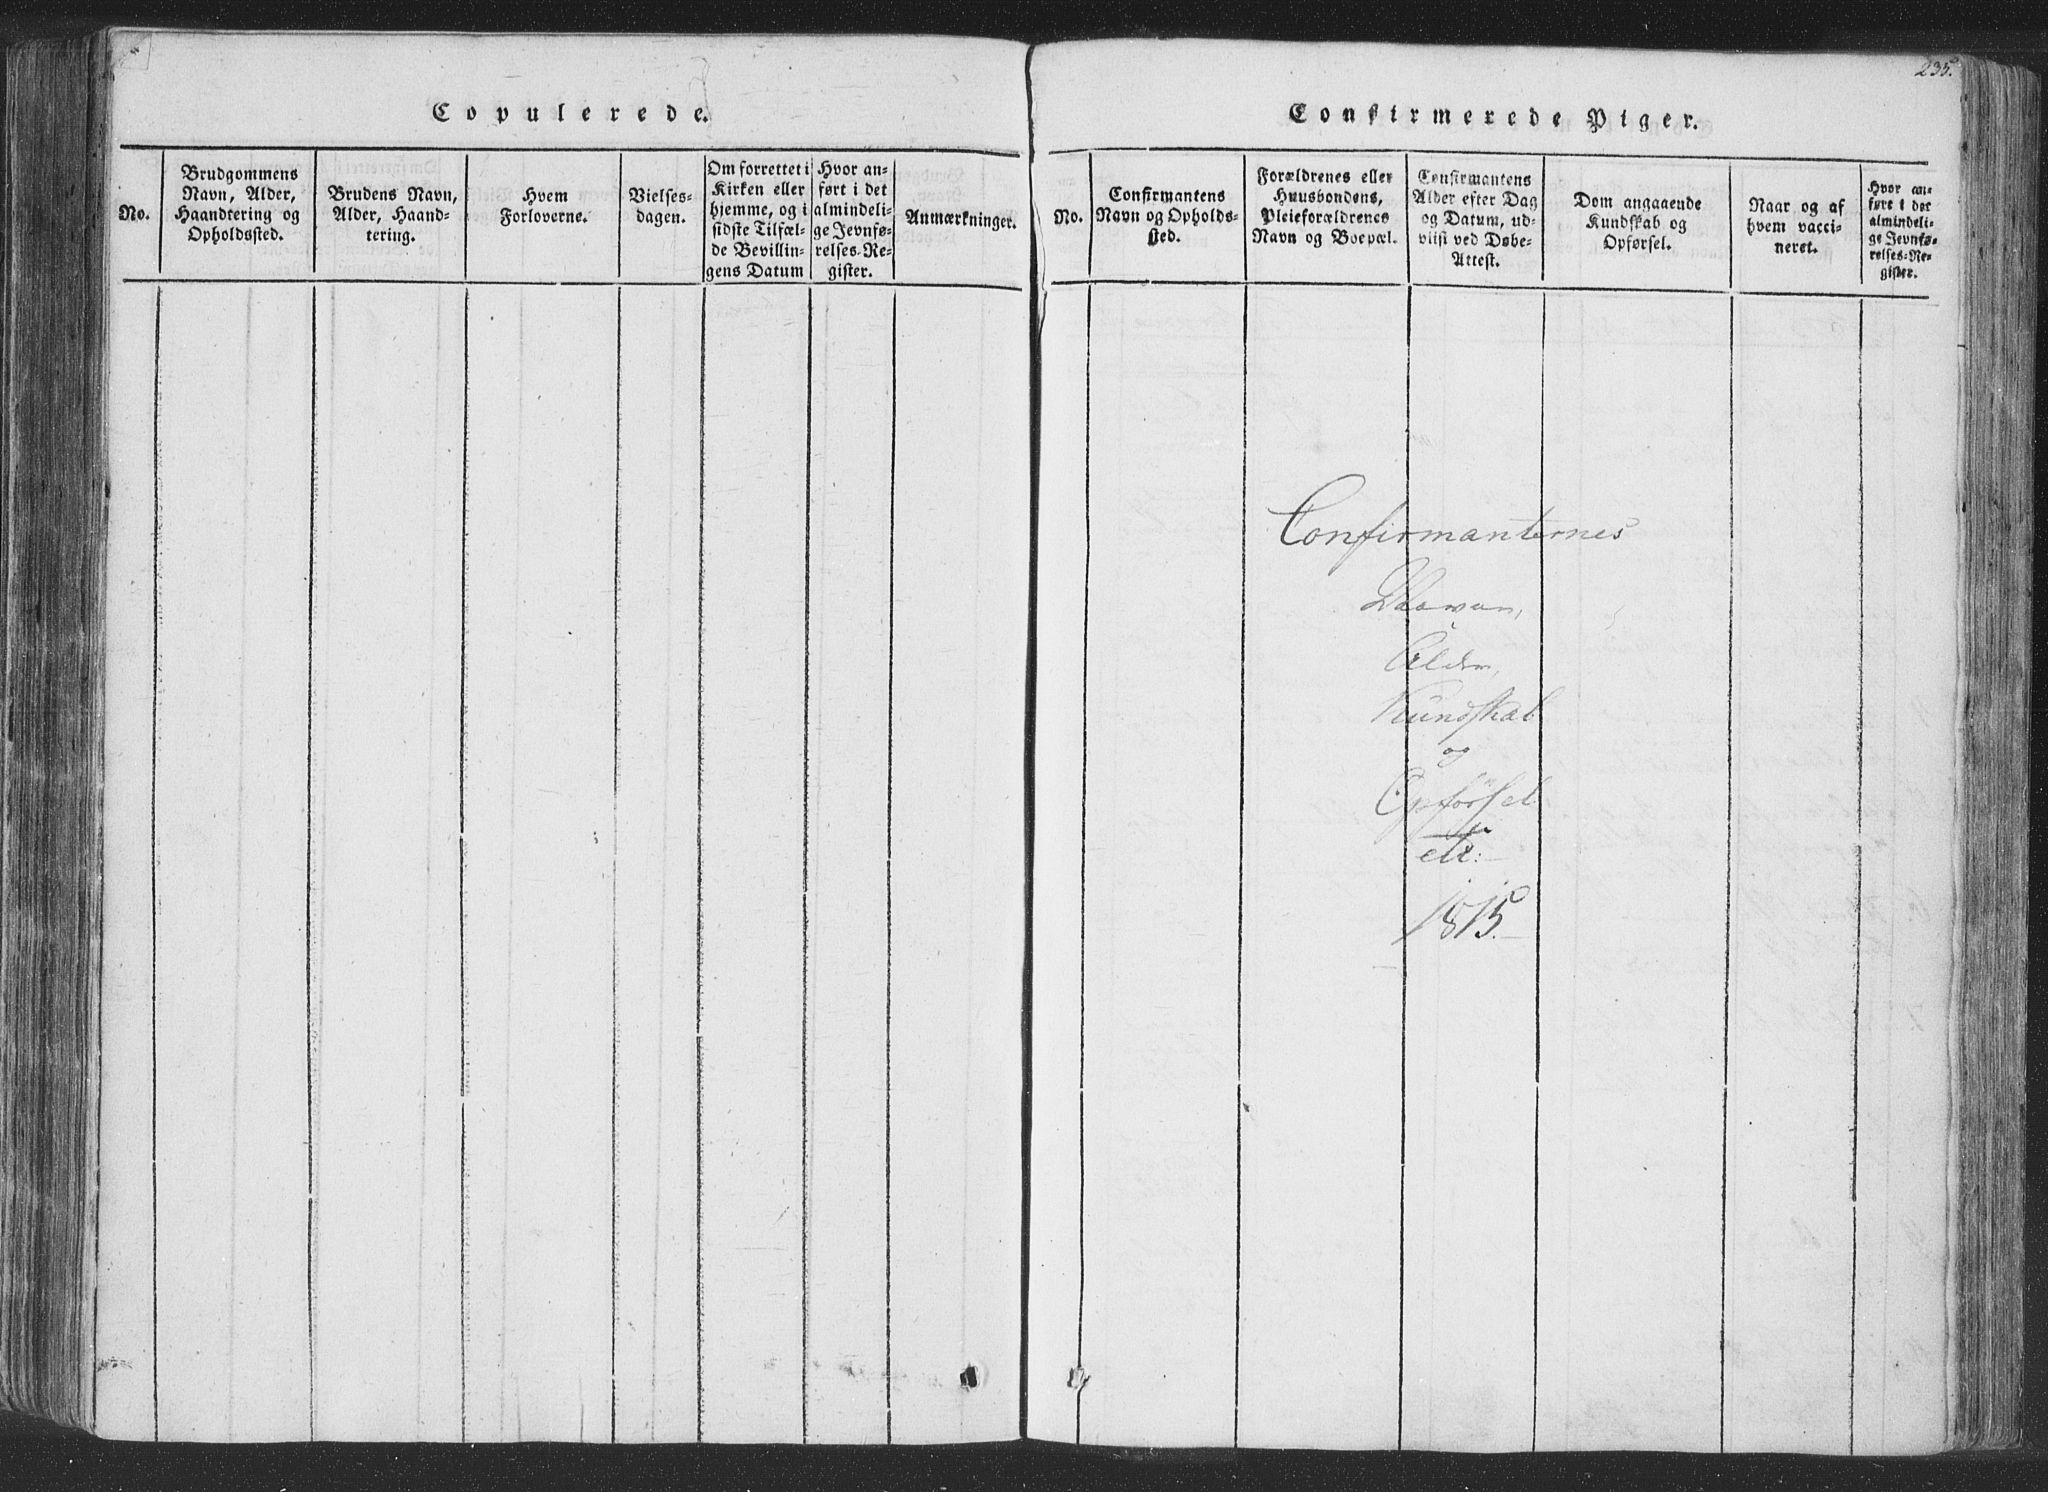 Copulerede.
No.
Brudgommens
Navn, Alder,
Haandtering og
Opholdssted.
Brudens Navn,
Alder, Haand-
tering.
Hvem
Forloverne.
Vielses-
dagen.
Om forrettet i
Kirken eller
hjemme, og i
sidste Tilfæl-
de Bevillin-
gens Datum
Hvor an-
ført i det
almindeli-
ge Jevnfø-
relses-Re-
gister.
Anmærkninger.
235.
Confirmerede Piger.
No.
Confirmantens
Navn og Opholds-
sted.
Forældrenes eller
Huusbondens,
Pleieforældrenes
Navn og Boepæl.
Confirmantens
Alder efter Dag
og Datum, ud-
viist ved Døbe-
Attest.
Dom angaaende
Kundskab og
Opførsel.
Naar og af
hvem vacci-
neret.
Hvor an-
ført i det
almindeli-
ge Jevnfø-
relses-Re-
gister.
Confirmanternes
Alder,
Kundskab
og
Opførsel
etc:
1815.